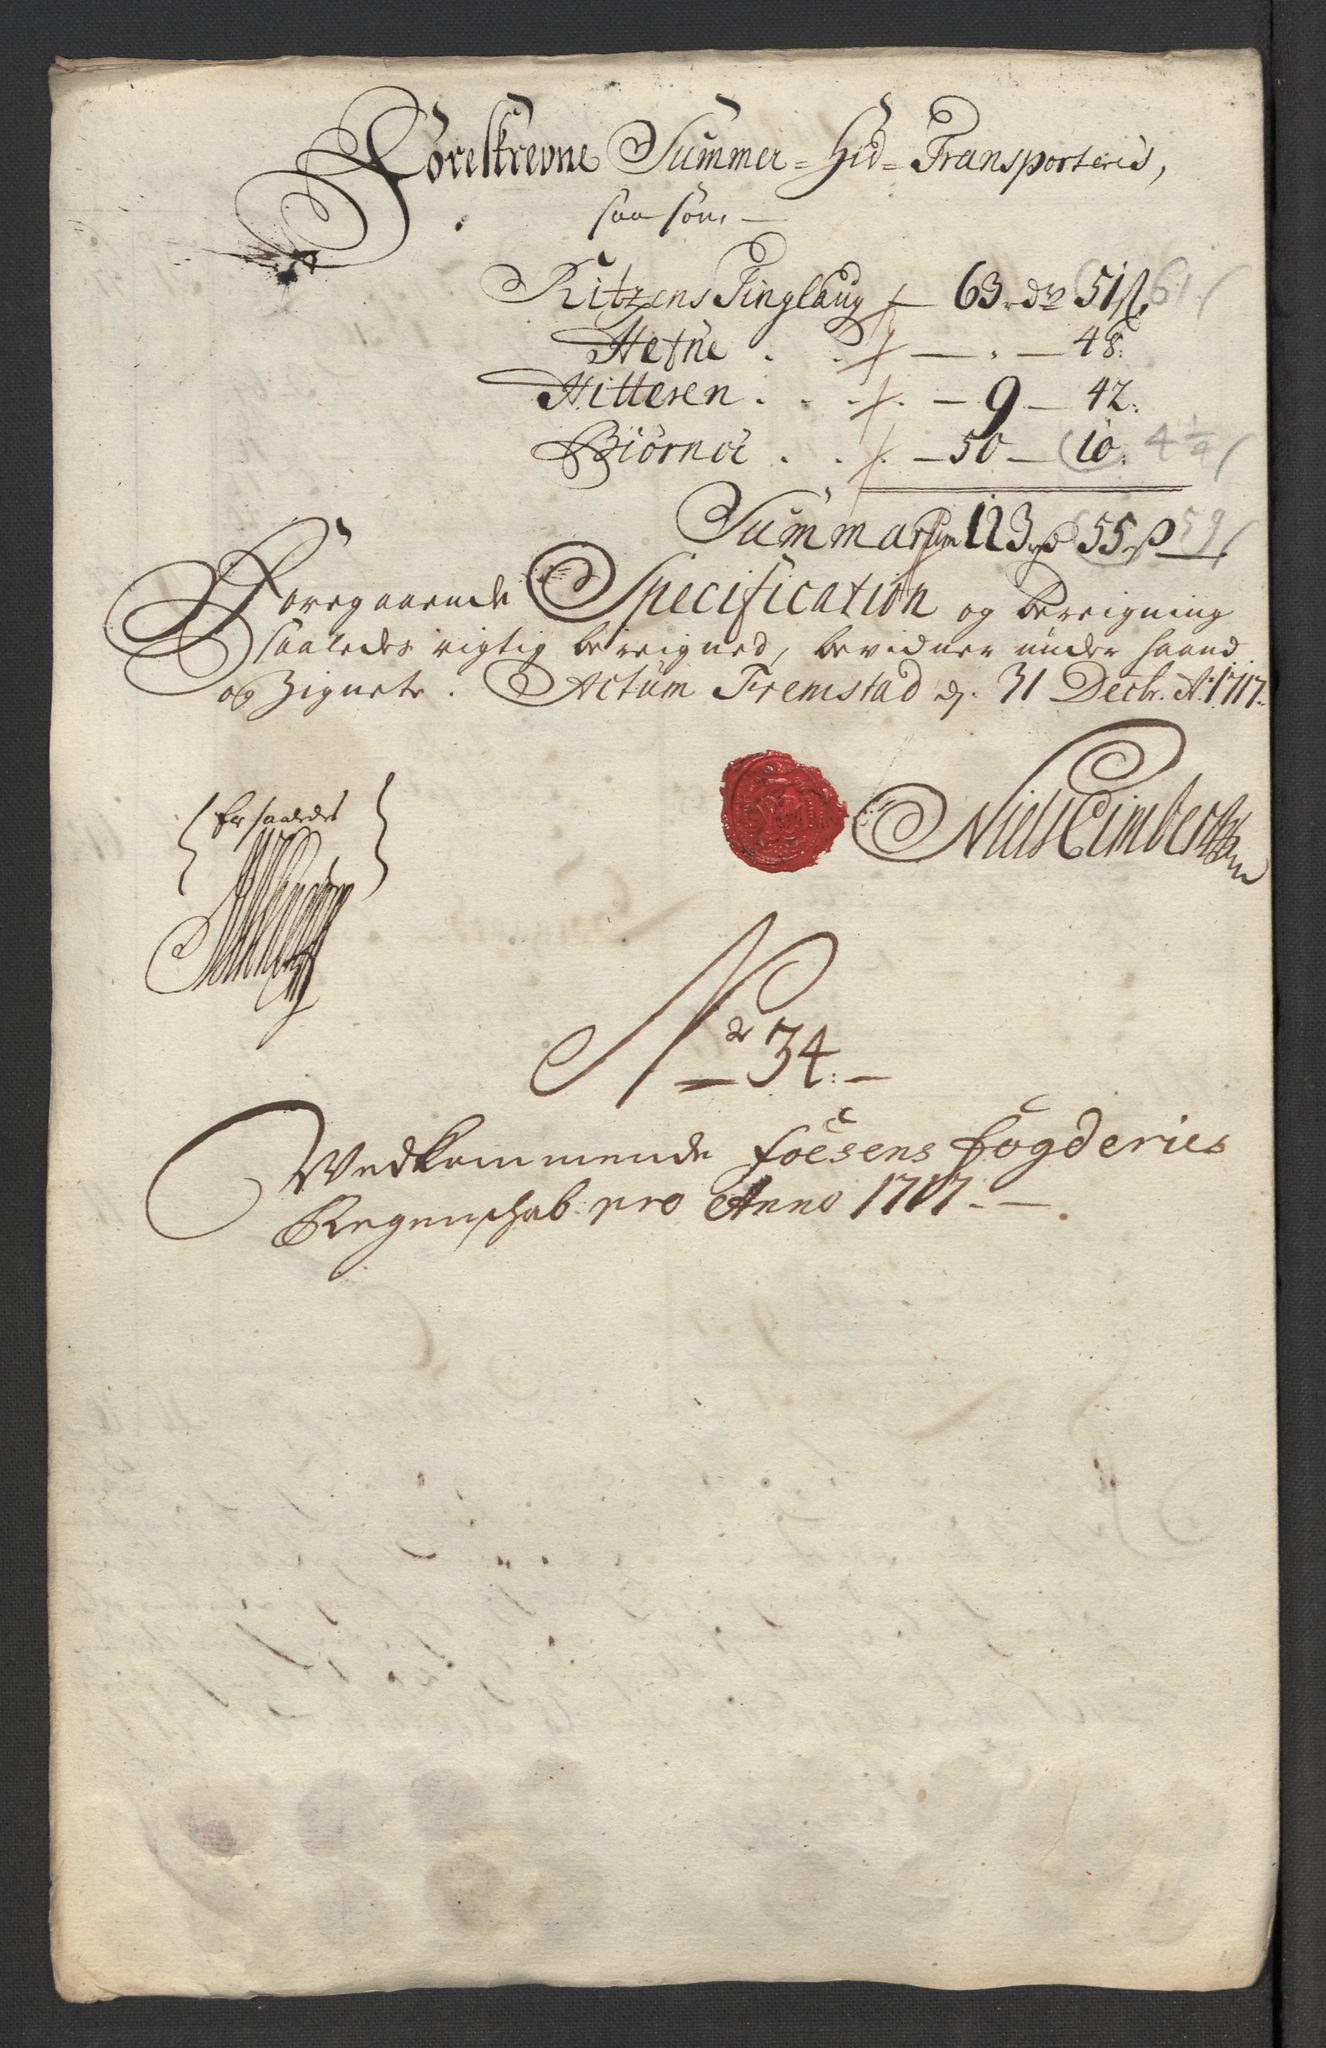 Foreskrevne Summer = Hid = Transporteris,
saasom. —
Ritzens Tinglaug — 63 rdr 51 ß. 61
Hefne . . — . — 48.
Hitteren . . . — 9 — 42.
Biørnør . . . — 50 — 10. 4 1/4
Summarum 123 rd 55 ß 59
Foregaaende Specification og bereigning
saaledes rigtig bereigned, bevidner under haand
og Zignete. Actum Fremstad d. 31 Decbr. Ao. 1717.
Er saaledes
Niels
No 34. —
Vedkommende Foesens fogderies
Regenschab pro Anno 1717. —.